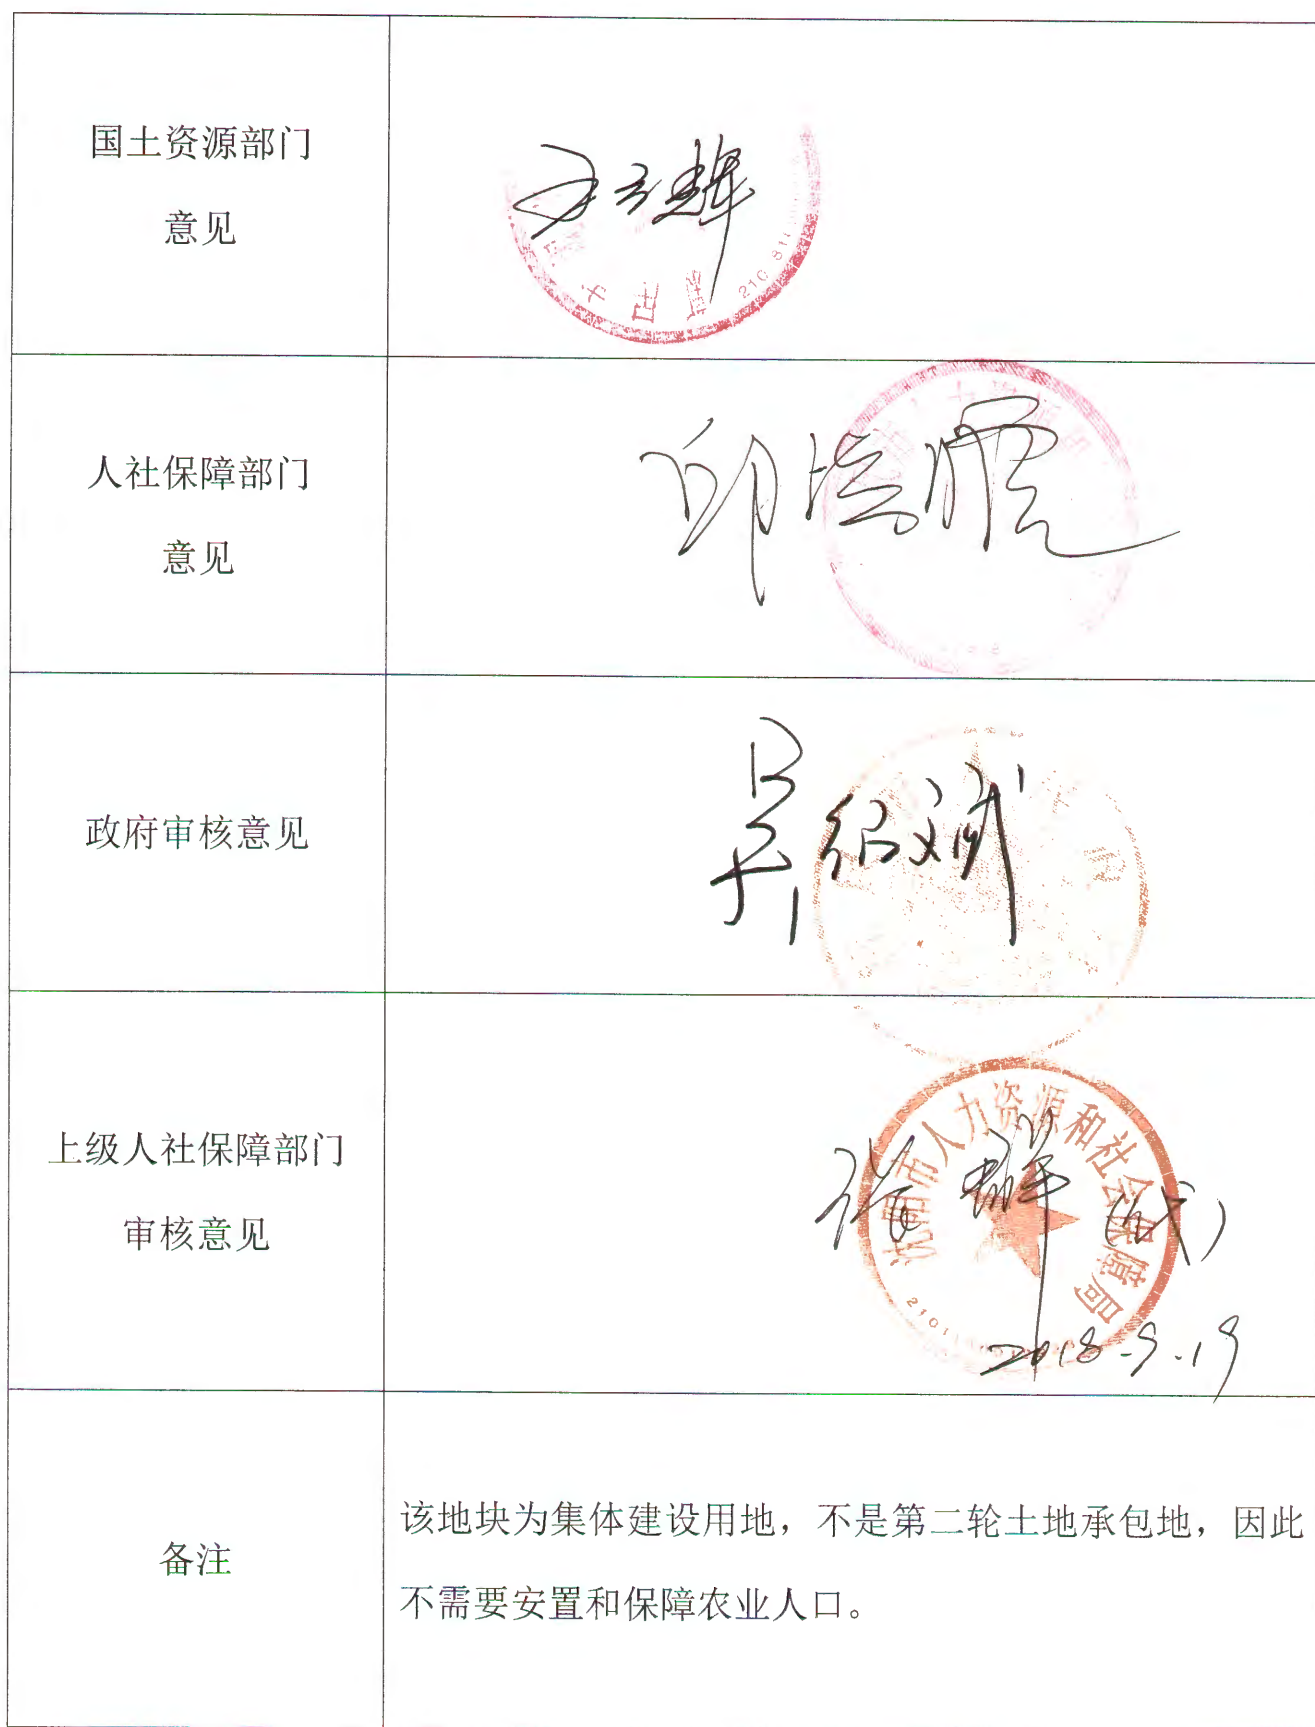 国土资源部门
意见
人社保障部门
意见
政府审核意见
吴绍斌
上级人社保障部门
审核意见
沈阳市人力资源和社会保障局
2018-9-19
备注
该地块为集体建设用地，不是第二轮土地承包地，因此
不需要安置和保障农业人口。